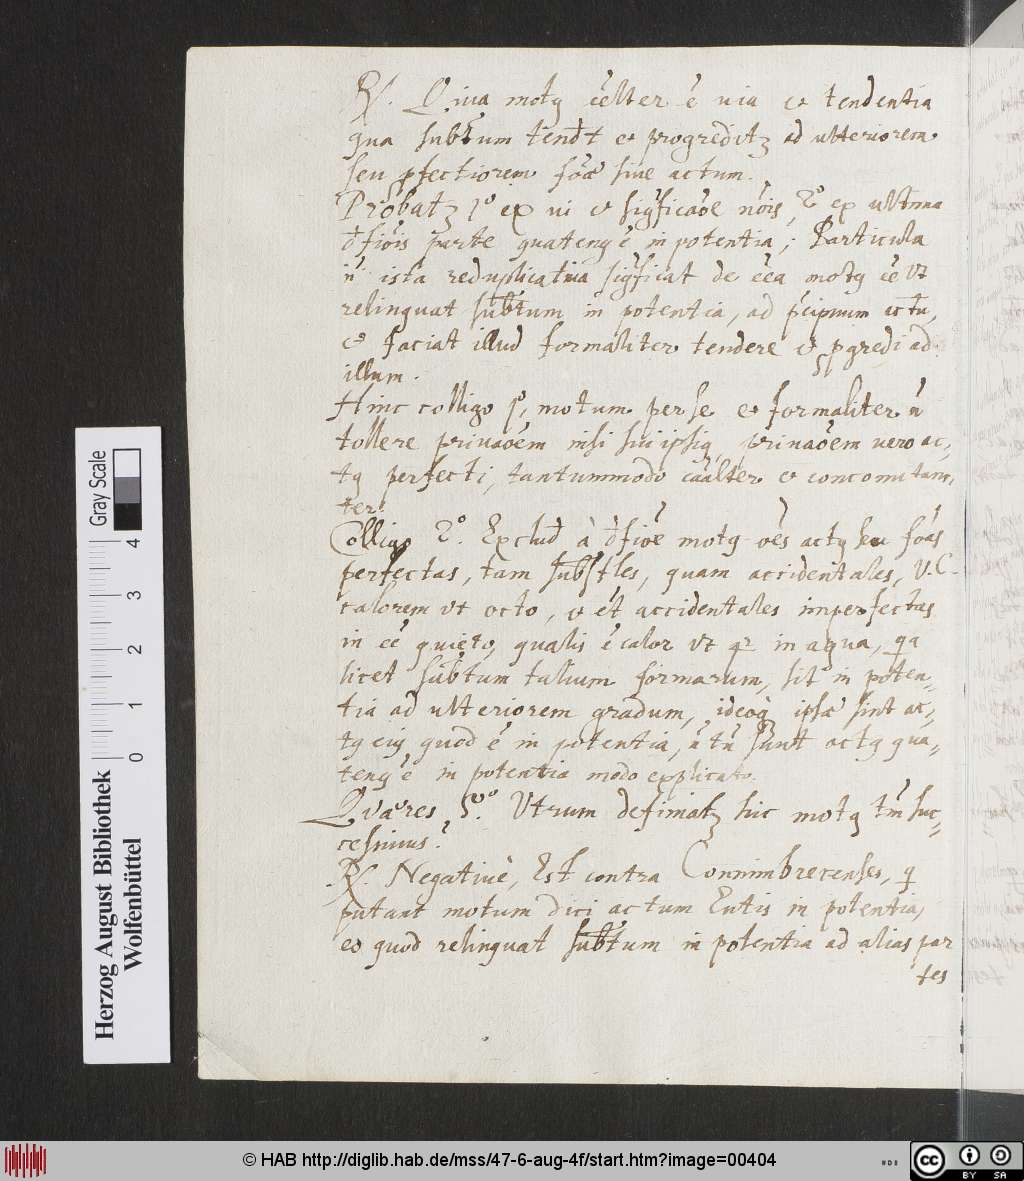 R. Quia motq eēlter ē via et tendentia
qua subtum tendt et progreditz ad ulteriorem
seu pfectiorem foã sive actum.
Probatz 1º ex vi et sigficaõe nois, 2º ex ultima
dfiõis parte quatenq ē in potentia; Particula
n ista reduplicativa sigficat de eēa motq eē vt
relinquat subtum in potentia, ad pcipuum actũ,
et faciat illud formaliter tendere et pgredi ad
illum.
Hinc colligo 1º, motum per se et formaliter ñ
tollere privaõem nisi sui ipsiq, privaõem vero ac-
tq perfecti, tantummodo caãlter et concomitan-
ter.
Colligo 2º. Exclud à dfiõe motq oēs actq seu foãs
perfectas, tam substles, quam accidentales, V.C.
calorem vt octo, et et accidentales imperfectas
in eē quieto, qualis ē calor vt 4 in aqua, qa
licet subtum talium formarum, sit in poten-
tia ad ulteriorem gradum, ideoq ipsæ sint ac-
tq eiq quod ē in potentia, ñ tñ sunt actq qua-
tenq ē in potentia modo explicato.
Quæres 5º. Utrum definiatz hic motq tm suc-
cessivus?
R. Negativè, Est contra Connimbrecenses, q
putant motum dici actum Entis in potentia,
eo quod relinquat subtum in potentia ad alias par
tes
Herzog August Bibliothek
Wolfenbüttel
Gray Scale
0 1 2 3 4
© HAB http://diglib.hab.de/mss/47-6-aug-4f/start.htm?image=00404
cc BY SA